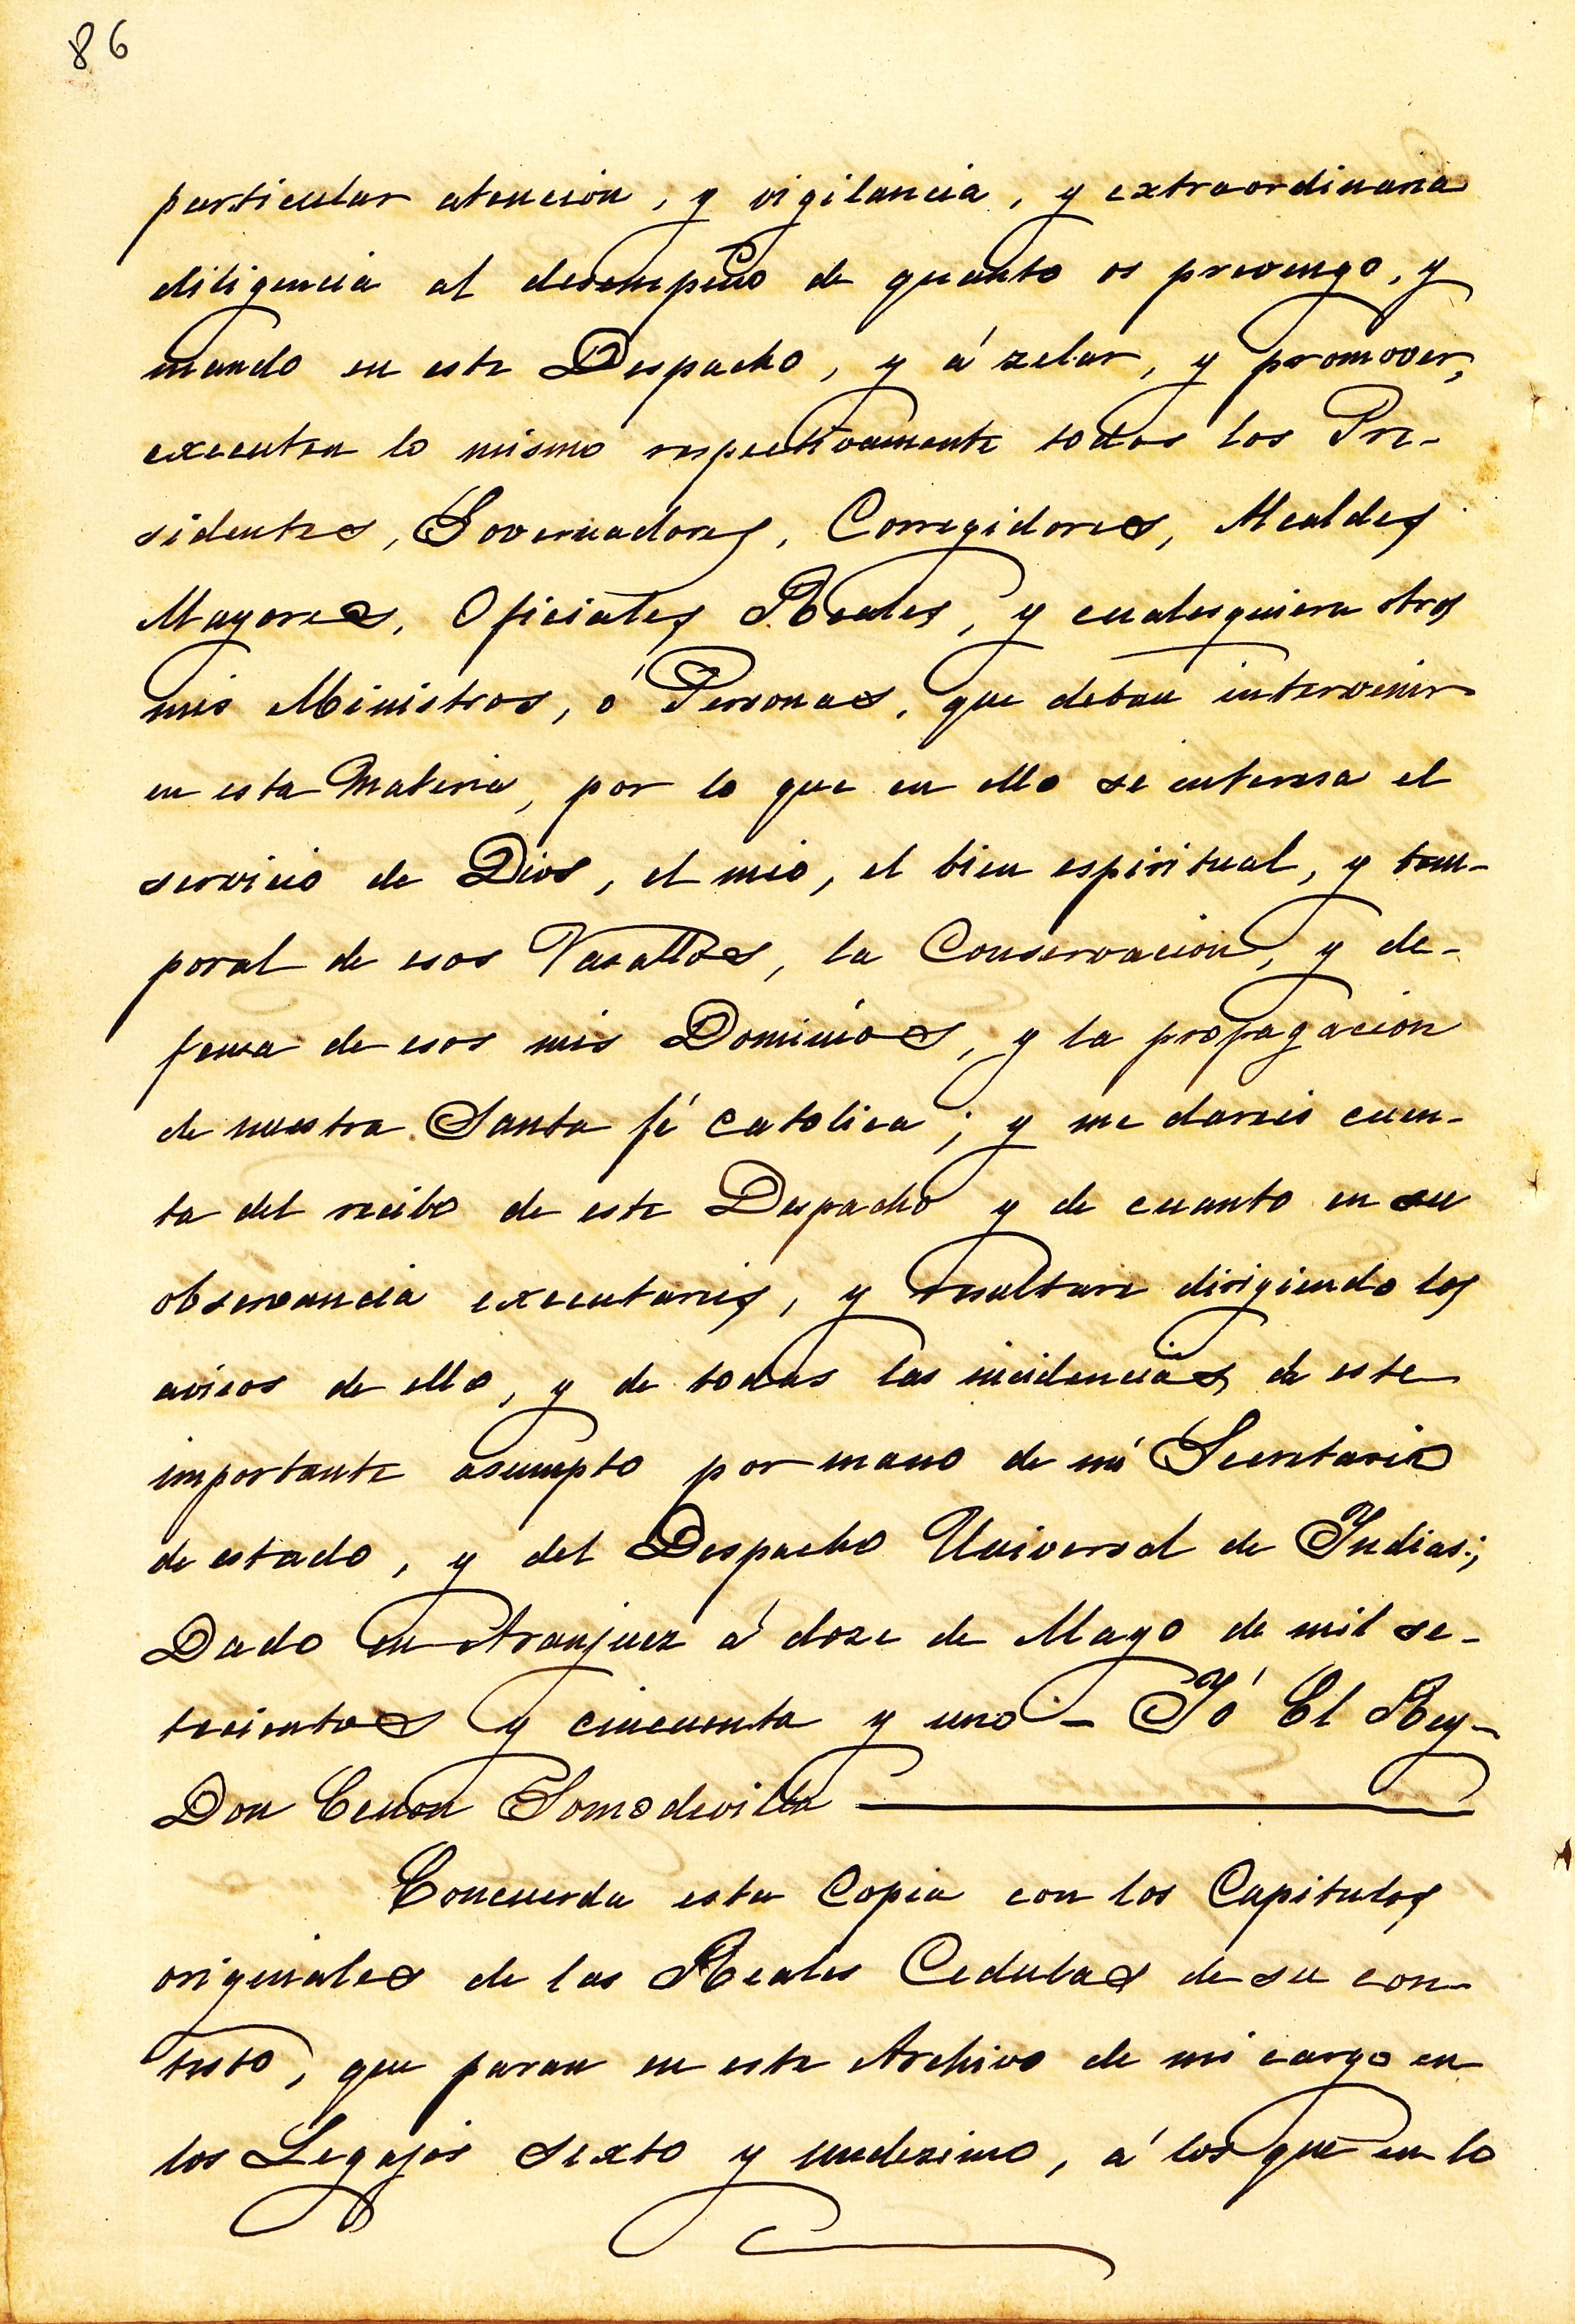 86
particular atencion, y vigilancia, y extraordinaria
diligencia al desempeño de quanto os prevengo, y
mando en este Despacho, y á zelar, y promover,
executen lo mismo respectivamente todos los Pre-
sidentes, Governadores, Corregidores, Alcaldes
Mayores, Oficiales Reales, y cualesquiera otros
mis Ministros, ó Personas, que deban intervenir
en esta Materia, por lo que en ello se interesa el
servicio de Dios, el mio, el bien espiritual, y tem-
poral de esos Vasallos, la Conservacion, y de-
fensa de esos mis Dominios, y la propagacion
de nuestra Santa fé Catolica; y me dareis cuen-
ta del recibo de este Despacho y de cuanto en su
observancia executareis, y resultare dirigiendo los
avisos de ello, y de todas las incidencias de este
importante asumpto por mano de mi Secretario
de estado, y del Despacho Universal de Indias;
Dado en Aranjuez á doze de Mayo de mil se-
tecientos y cincuenta y uno - Yó El Rey-
Don Cenon Somodevilla
Concuerda esta Copia con los Capitulos
originales de las Reales Cedulas de su con-
testo, que paran en este Archivo de mi cargo en
los Legajos sexto y undezimo, á los que en lo